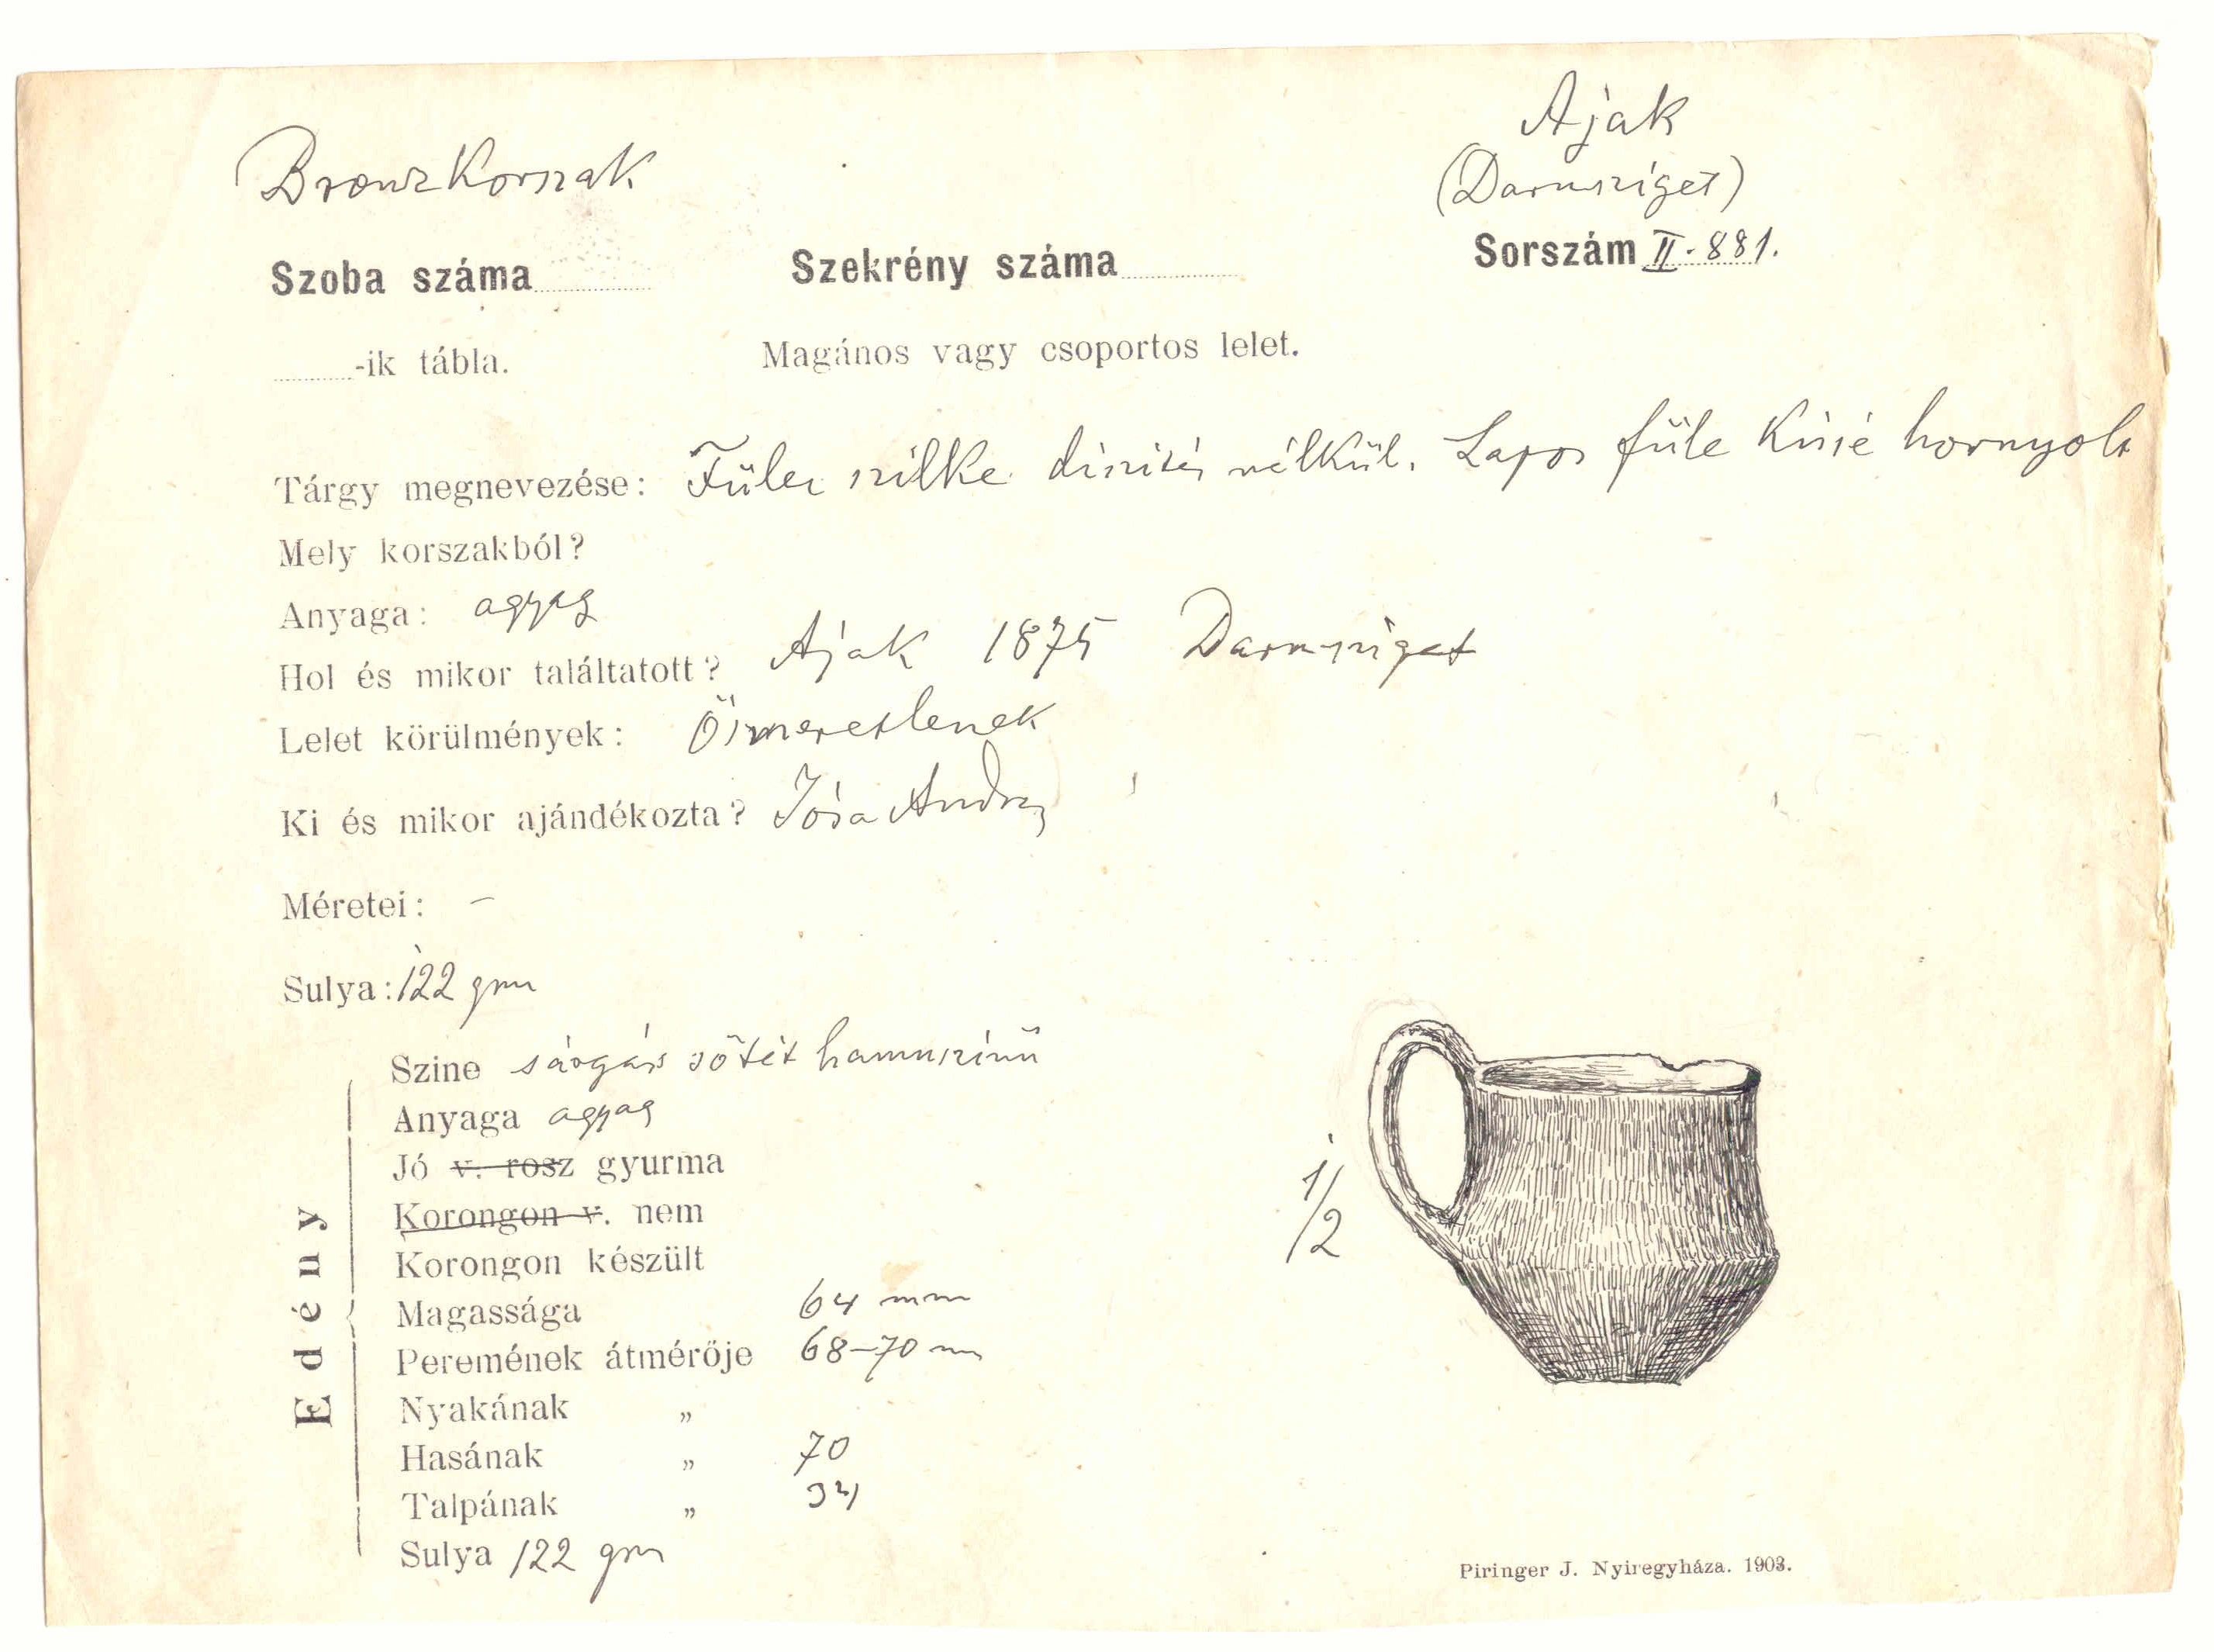 Ajak
Bronzkorszak
(Darusziget)
Szoba száma Szekrény száma Sorszám II. 881.
-ik tábla. Magános vagy csoportos lelet.
Tárgy megnevezése: Füles szilke diszités nélkül. Lapos füle kissé hornyolt
Mely korszakból?
Anyaga: agyag
Hol és mikor találtatott? Ajak 1875 Darusziget
Lelet körülmények: Ösmeretlenek
Ki és mikor ajándékozta? Jósa András
Méretei: –
Sulya: 122 gm
Edény
Szine sárgás sötét hamuszinü
Anyaga agyag
Jó v. rosz gyurma
Korongon v. nem
Korongon készült
Magassága 64 mm
Peremének átmérője 68–70 mm
Nyakának „
Hasának „ 70
Talpának „ 34
Sulya 122 gm
1/2
Piringer J. Nyiregyháza. 1903.